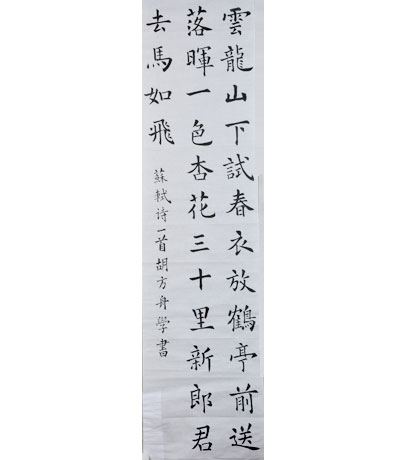 雲龍山下試春衣放鶴亭前送
落暉一色杏花三十里新郎君
去馬如飛
蘇軾诗一首胡方舟學書